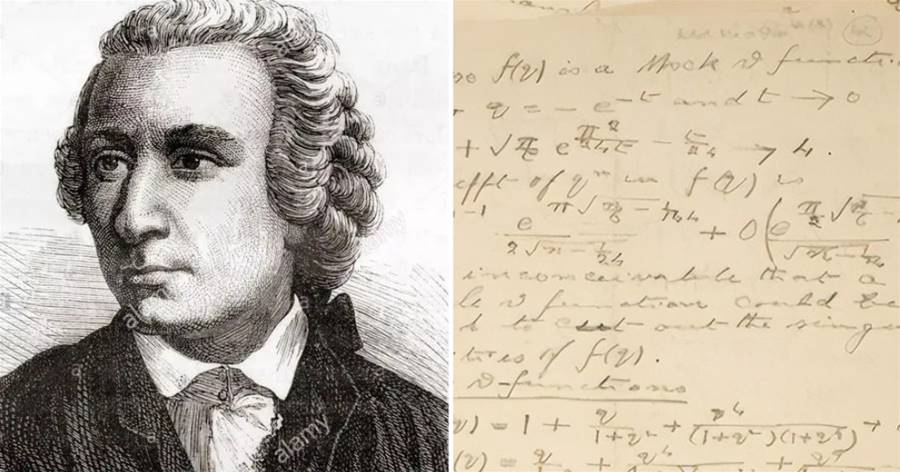 alamy
so f(q) is a Mock ϑ functi
q = - e^-t and t → 0
+ √π/t e^π²/24t - t/24 → 4.
efft of q^n in f(q) is
-1 e^π√n/6 - 1/144 / 2√n - 1/24 + O(e^π/2√n/6 - / √n - 1/24
inconceivable that a
le ϑ function could be
to cut out the singu
ties of f(q).
ϑ-functions
q) = 1 + q/1+q² + q⁴/(1+q²)(1+q⁴) +
(q) = q + q⁴ + q⁹